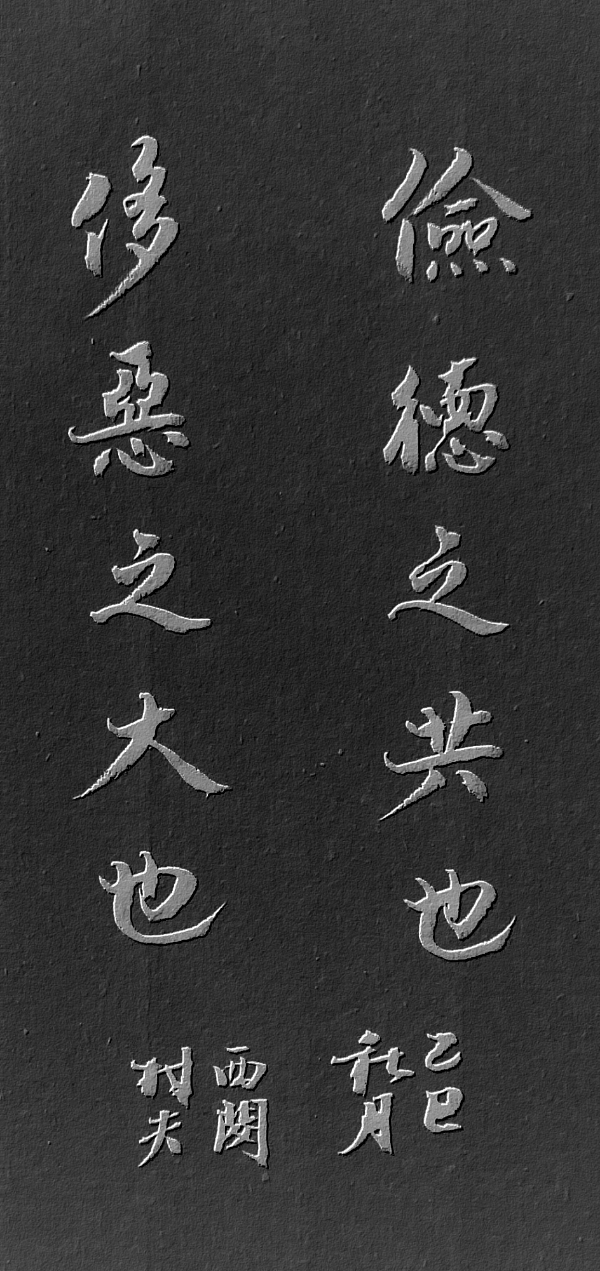 儉德之共也
侈惡之大也
己巳
秋月
西閔
村夫